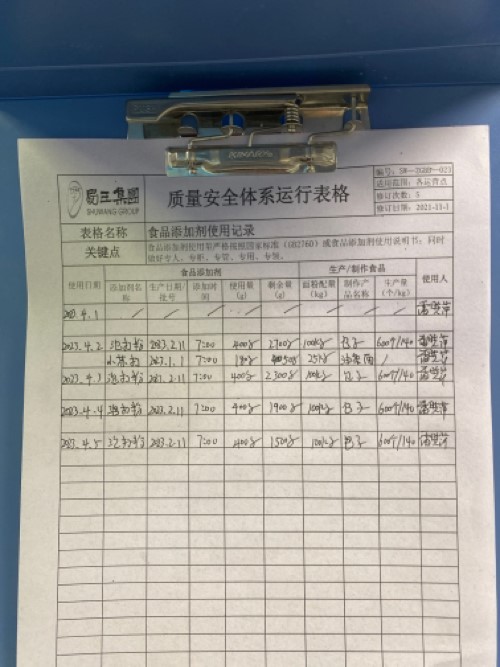 KINARY
蜀王集團
SHUWANG GROUP
质量安全体系运行表格
编号：SW-ZGBP-023
适用范围：各运营点
修订次数：5
修订日期：2021-11-1
表格名称 食品添加剂使用记录
关键点 食品添加剂使用须严格按照国家标准（GB2760）或食品添加剂使用说明书；同时
做好专人、专柜、专管、专用、专领。
使用日期 食品添加剂 生产/制作食品 使用人
添加剂名称 生产日期/批号 添加时间 使用量(g) 剩余量(g) 面粉配量(kg) 制作产品名称 生产量(个/kg)
2023.4.1 / / / / / / / /
2023.4.2 泡打粉 2023.2.11 7:00 400g 2700g 100kg 包子 600个/140
1.1 7:00 25kg /
2023.4.3 泡打粉 2023.2.11 7:00 400g 2300g 100kg 包子 600个/140
2023.4.4 泡打粉 2023.2.11 7:00 400g 1900g 100kg 包子 600个/140
2023.4.5 泡打粉 2023.2.11 7:00 400g 1500g 100kg 包子 600个/140